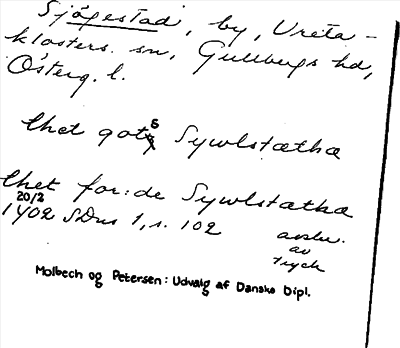 Sjögestad, by, Vreta-
klosters sn, Gullbergs hd,
Österg. l.
thet gotz Sywlstætha
s
thet for:de Sywlstætha
20/2
1402 SDns 1, s. 102
avskr.
av
tryck
Molbech og Petersen: Udvalg af Danske Dipl.